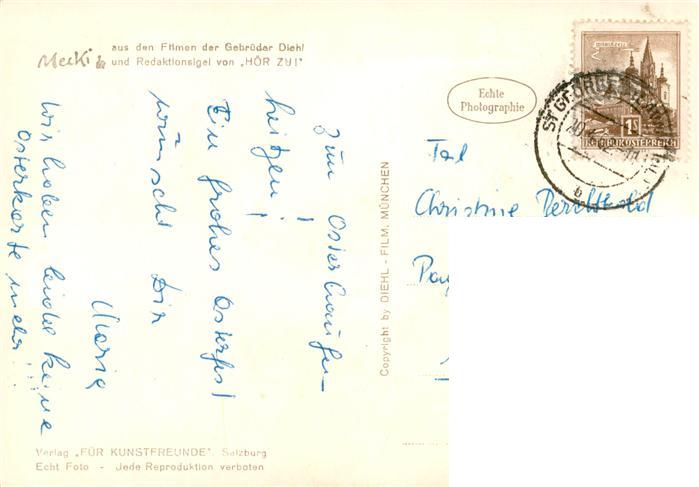 Mecki aus den Filmen der Gebrüder Diehl
und Redaktionsigel von „HÖR ZU!"
Zum Oster
heitzen!
Ein frohes Osterfest
wünscht Dir
Maria
Wir haben leider keine
Osterkarte mehr!!!
Echte
Photographie
ST GEORGE
1S
REPUBLIK ÖSTERREICH
Christine
Copyright by DIEHL - FILM, MÜNCHEN
Verlag „FÜR KUNSTFREUNDE", Salzburg
Echt Foto - Jede Reproduktion verboten